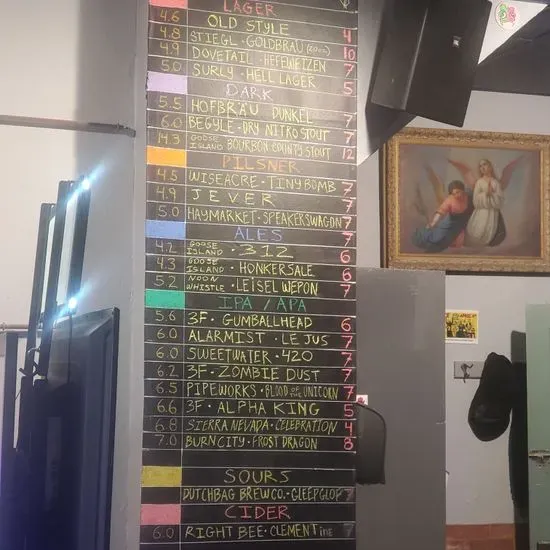 LAGER
4.6 OLD STYLE 4
4.8 STIEGL · GOLDBRAU (20oz) 10
4.9 DOVETAIL · HEFEWEIZEN 7
5.0 SURLY · HELL LAGER 5
DARK
5.5 HOFBRÄU DUNKEL 7
6.0 BEGYLE · DRY NITRO STOUT 7
14.3 GOOSE ISLAND BOURBON COUNTY STOUT 12
PILSNER
4.5 WISEACRE · TINY BOMB 7
4.9 JEVER 7
5.0 HAYMARKET · SPEAKERSWAGON 7
ALES 7
4.2 GOOSE ISLAND · 312 6
4.3 GOOSE ISLAND · HONKERSALE 6
5.2 NOON WHISTLE · LEISEL WEPON 7
IPA / APA
5.6 3F · GUMBALLHEAD 6
6.0 ALARMIST · LE JUS 7
6.0 SWEETWATER · 420 7
6.2 3F · ZOMBIE DUST 7
6.5 PIPEWORKS · BLOOD OF THE UNICORN 7
6.6 3F · ALPHA KING 5
6.8 SIERRA NEVADA · CELEBRATION 4
7.0 BURN CITY · FROST DRAGON 8
SOURS
DUTCHBAG BREW CO. · GLEEPGLOP 7
CIDER
6.0 RIGHT BEE · CLEMENTINE 7